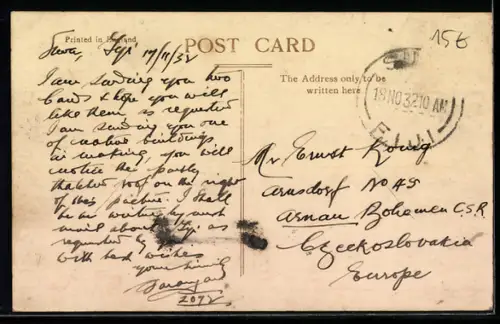 Printed in England
POST CARD
156
Suva, Fiji 17/11/32
I am sending you two
Cards & hope you will
like them, as requested
I am sending you one
of native buildings
in making, you will
notice the partly
thatched roof on the right
of this picture. I shall
be writing by next
mail about Fiji as
requested by
with best wishes
yours
2072
The Address only to be
written here
18 NO 32 10 AM
FIJI
Mr Ernst König
Arnsdorf No 49
Arnau Bohemen C.S.R.
Czeckoslovakia
Europe